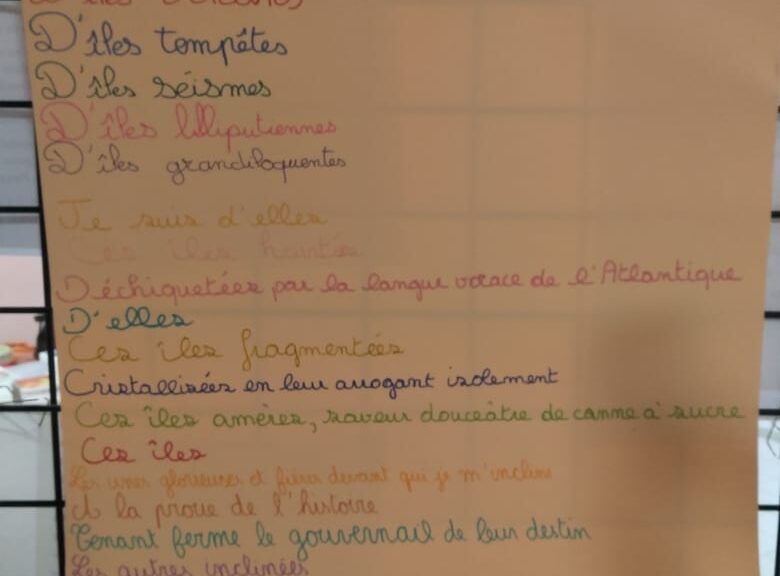 D'îles tempêtes
D'îles séismes
D'îles lilliputiennes
D'îles grandiloquentes
Je suis d'elles
Ces îles heurtées
Déchiquetées par la langue vorace de l'Atlantique
D'elles
Ces îles fragmentées
Cristallisées en leur arrogant isolement
Ces îles amères, saveur douceâtre de canne à sucre
Ces îles
Les unes glorieuses et fières devant qui je m'incline
A la proue de l'histoire
Tenant ferme le gouvernail de leur destin
Les autres inclinées